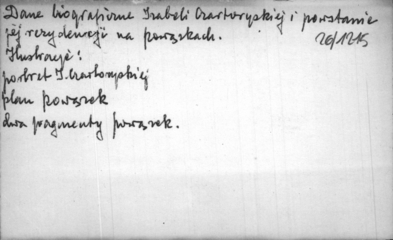 Dane biograficzne Izabeli Czartoryskiej i powstanie
jej rezydencji na Powązkach.
26/1215
Ilustracje:
portret I. Czartoryskiej
plan Powązek
dwa fragmenty Powązek.